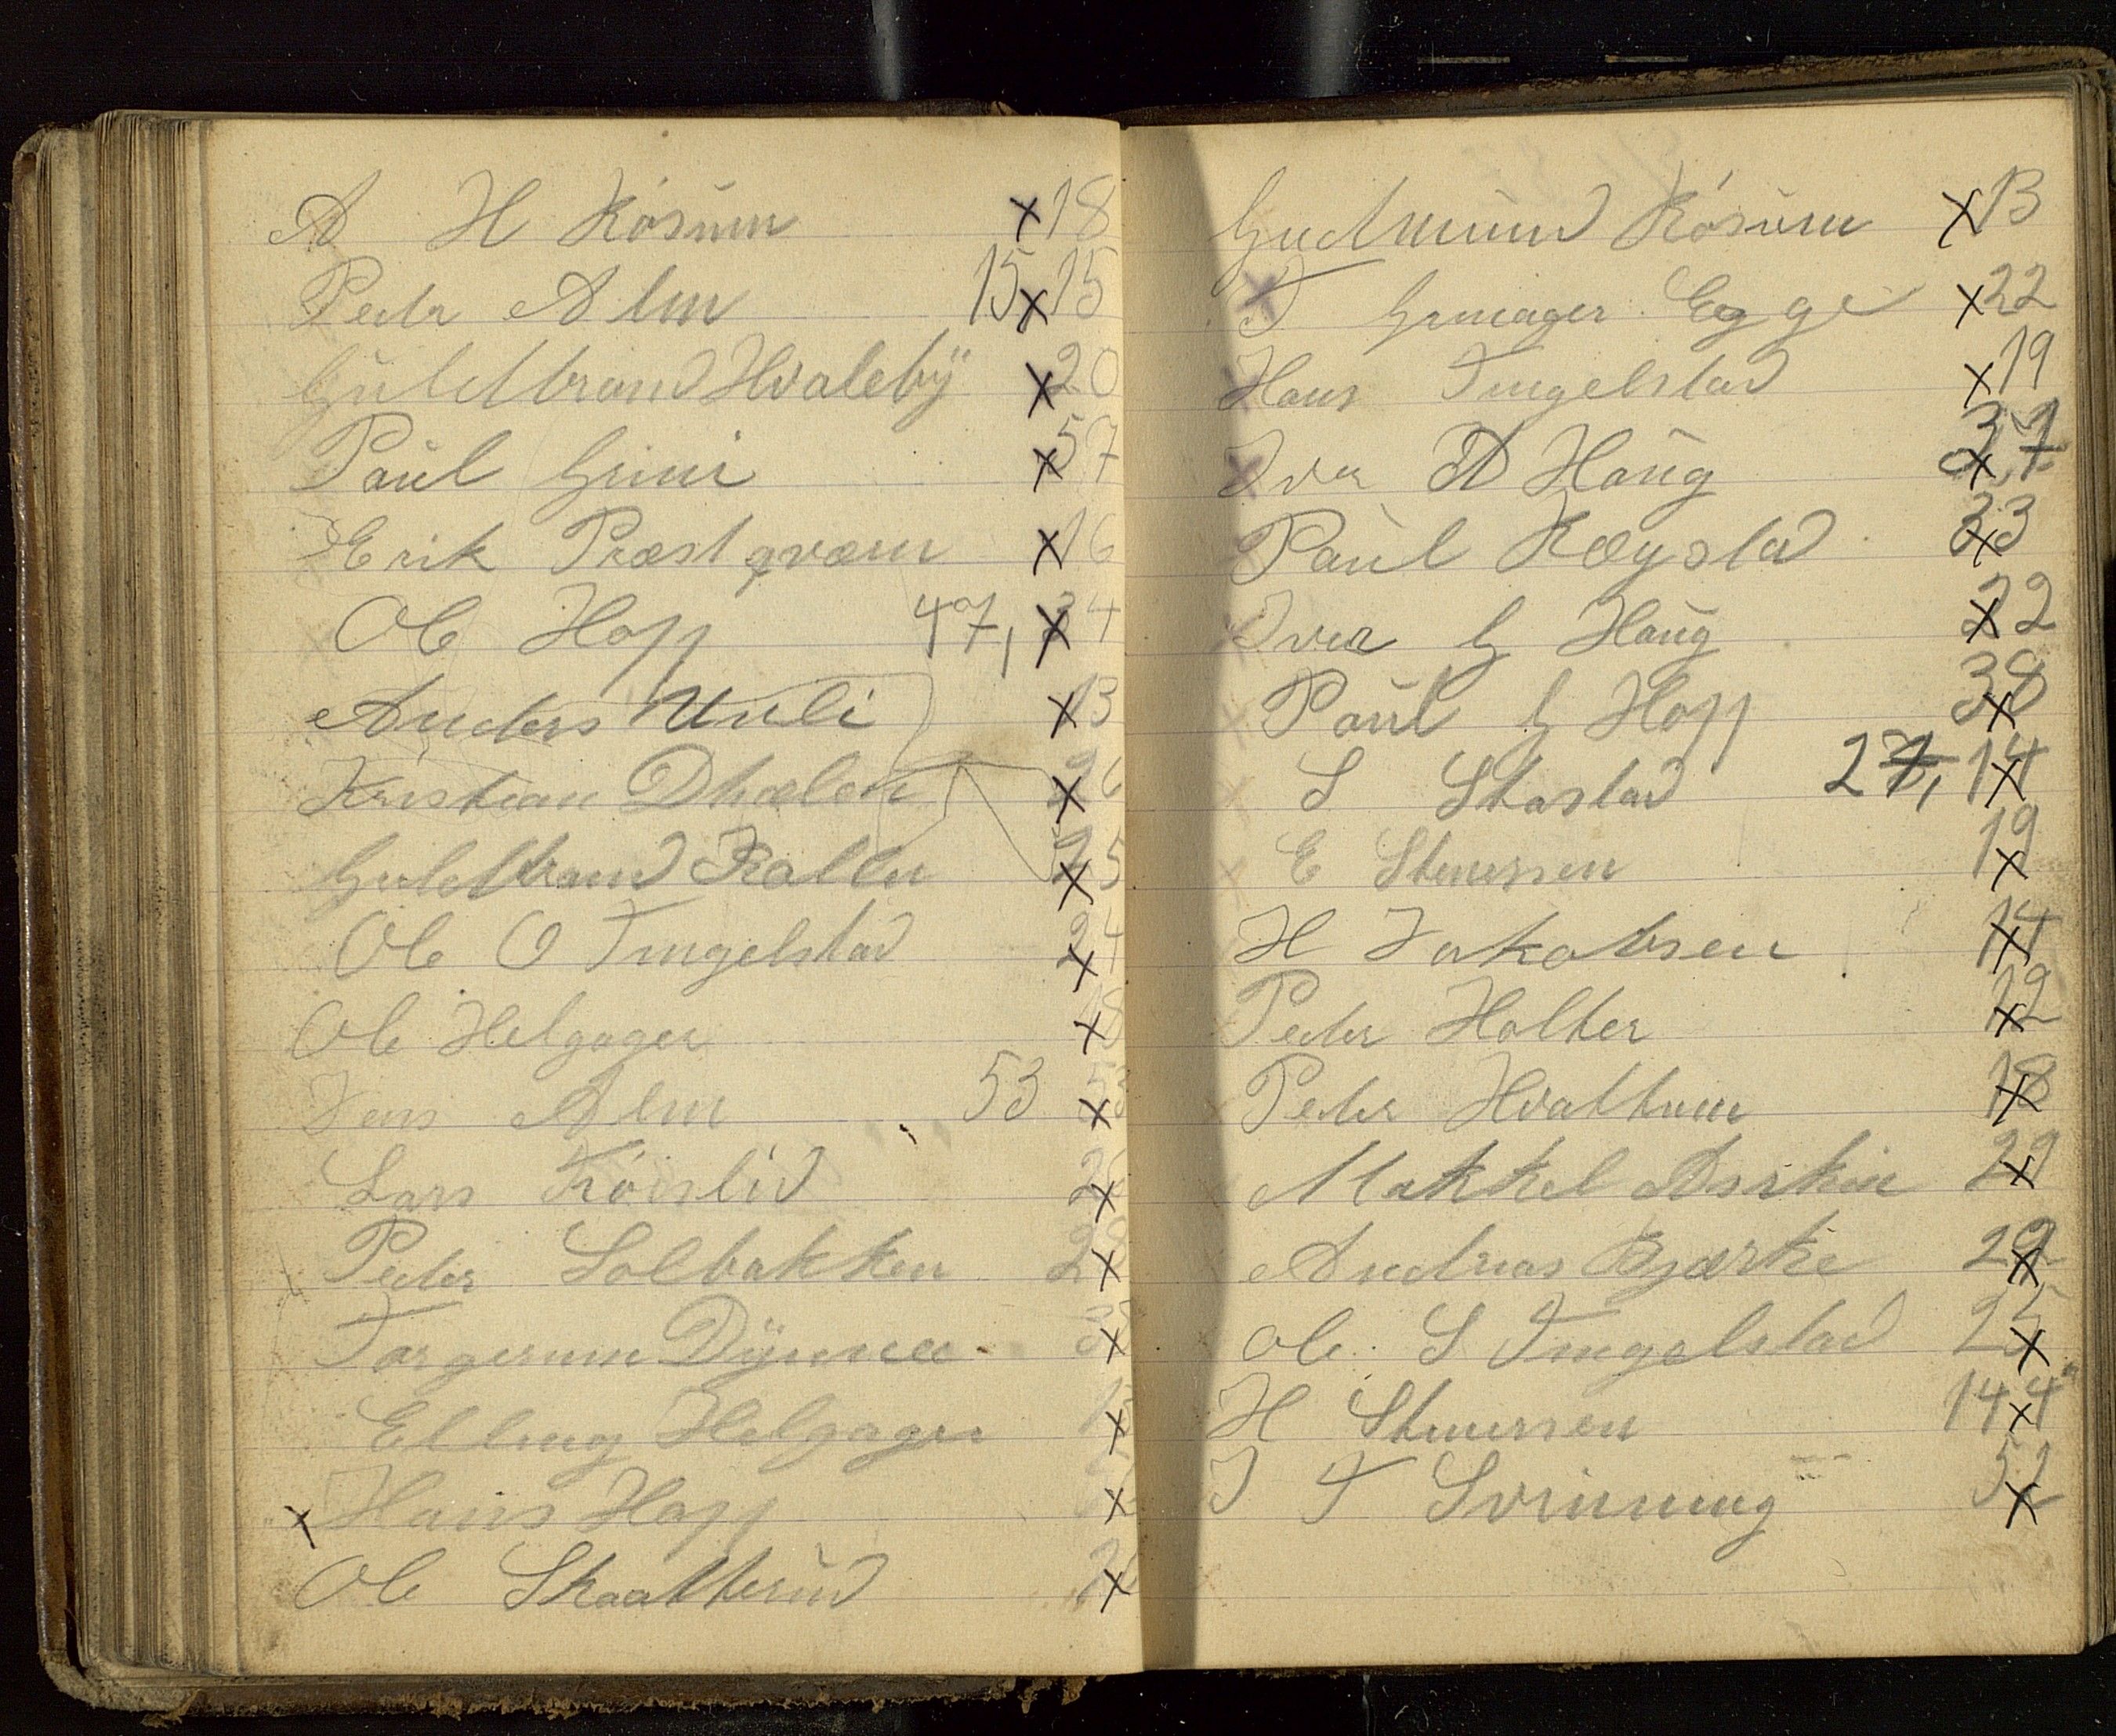 A H Kósum x18
Peder Alm 15x15
Guldbrand Hvaleby x20
Paul Grini x57
Erik Præstqværn x16
Ole Hopp 47, x34
Anders Unli x13
Kristian Dhælen x26
Guldbrand Rallu x25
Ole O Tingelstad x24
Ole Helgager x18
Jens Alm 53 x53
Lars Kóislid x
Peder Solbakken x
Torgerum Dynna x
Elling Helgager x
x Hans Hopp x
Ole Skaatterud x
Gudmund Kósum x13
T Grinager Egge x22
Hans Tingelstad x19
Iver A Haug x
Paul Røystad x33
Iver G Haug x22
Paul G Hopp x38
S Skarstad x14
E Stenersen x19
H Jakobsen x14
Peder Holter x
Peder Hvattum x18
Makkel Askin x29
Andreas Bjærke x
Ole S Tingelstad x25
H Stenersen 14x4
I T Svinning x52